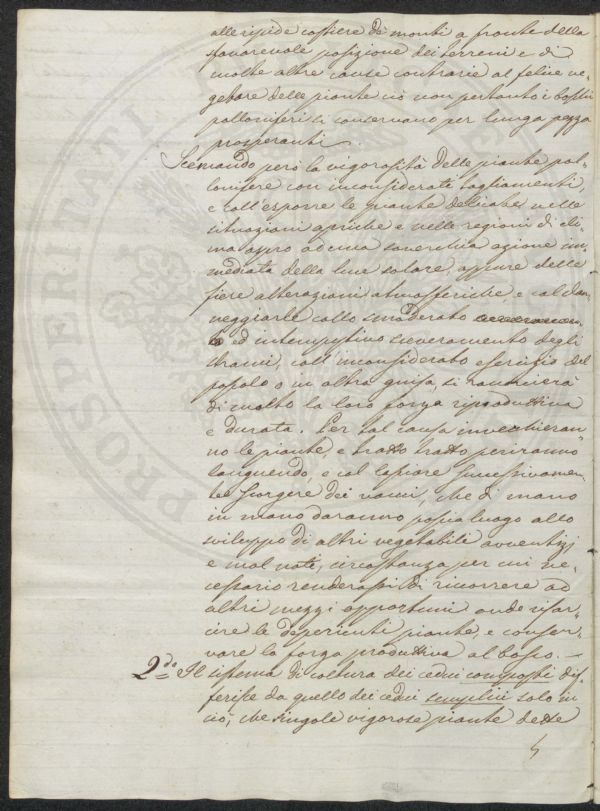 alle ripide costiere de' monti a fronte della
favorevole posizione dei terreni e di
molte altre cause contrarie al felice ve-
getare delle piante ciò non pertanto i boschi
polloniferi si conservano per lunga pezza
prosperanti.
Scemando però la vigorosità delle piante pol-
lonifere con inconsiderati tagliamenti,
e coll'esporre le piante delicate nelle
situazioni apriche e nelle regioni di cli-
ma aspro ad una soverchia azione im-
mediata della luce solare, oppure delle
fiere alterazioni atmosferiche, e col dan-
neggiarle collo smoderato
ed intempestivo sceveramento degli
strami, coll'inconsiderato esercizio del
pascolo o in altra guisa, si rancierà
di molto la loro forza riproduttiva
e durata. Per tal causa invechieran-
no le piante, e tratto tratto periranno
languendo, e col lasciare successivamen-
te scorgere dei vani, che di mano
in mano daranno poscia luogo allo
sviluppo di altri vegetabili avventizj
e mal nati, circostanza per cui ne-
cessario renderassi di ricorrere ad
altri mezzi opportuni onde risar-
cire le deperienti piante, e conser-
vare la forza produttiva al bosco. —
2do Il sistema di coltura dei cedui composti dif-
ferisce da quello dei cedui semplici solo in
ciò, che singole vigorose piante dette